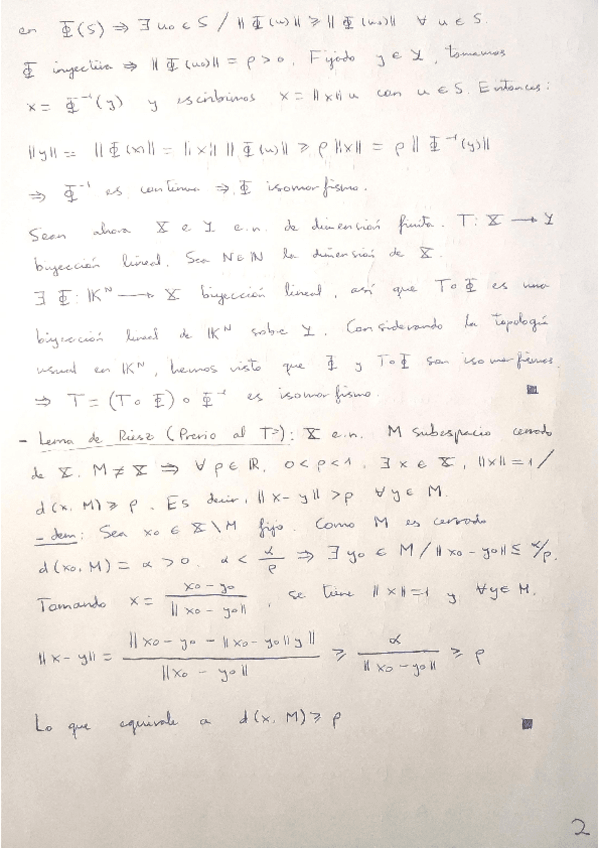 en Φ(S) ⇒ ∃ u₀ ∈ S / ‖Φ(u)‖ ≥ ‖Φ(u₀)‖ ∀ u ∈ S.
Φ inyectiva ⇒ ‖Φ(u₀)‖ = ρ > 0. Fijado y ∈ Y, tomamos
x = Φ⁻¹(y) y escribimos x = ‖x‖u con u ∈ S. Entonces:
‖y‖ = ‖Φ(x)‖ = ‖x‖ ‖Φ(u)‖ ≥ ρ‖x‖ = ρ‖Φ⁻¹(y)‖
⇒ Φ⁻¹ es continua ⇒ Φ isomorfismo.
Sean ahora X e Y e.n. de dimensión finita. T: X → Y
biyección lineal. Sea N ∈ ℕ la dimensión de X.
∃ Φ: 𝕂ᴺ → X biyección lineal, así que T∘Φ es una
biyección lineal de 𝕂ᴺ sobre Y. Considerando la topología
usual en 𝕂ᴺ, hemos visto que Φ y T∘Φ son isomorfismos.
⇒ T = (T∘Φ)∘Φ⁻¹ es isomorfismo. ■
- Lema de Riesz (Previo al Tª): X e.n. M subespacio cerrado
de X. M ≠ X ⇒ ∀ ρ ∈ ℝ. 0 < ρ < 1, ∃ x ∈ X, ‖x‖ = 1 /
d(x, M) ≥ ρ. Es decir, ‖x - y‖ > ρ ∀ y ∈ M.
- dem: Sea x₀ ∈ X \ M fijo. Como M es cerrado
d(x₀, M) = α > 0. α < α/ρ ⇒ ∃ y₀ ∈ M / ‖x₀ - y₀‖ ≤ α/ρ.
Tomando x = (x₀ - y₀)/‖x₀ - y₀‖, se tiene ‖x‖ = 1 y ∀ y ∈ M.
‖x - y‖ = ‖x₀ - y₀ - ‖x₀ - y₀‖y‖/‖x₀ - y₀‖ ≥ α/‖x₀ - y₀‖ ≥ ρ
Lo que equivale a d(x, M) ≥ ρ ■
2